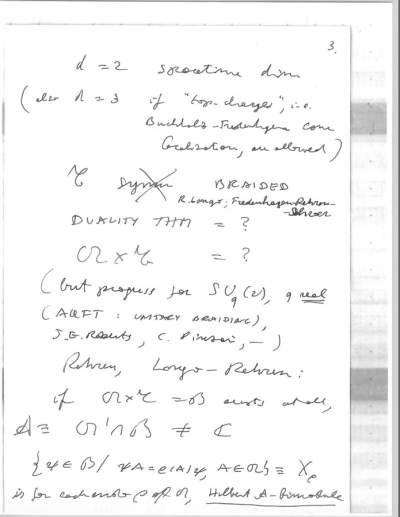 3.
d = 2 spacetime dim
(also d = 3 if "top. charges", i.e.
Buchholz-Fredenhagen cone
localization, are allowed)
𝒯 BRAIDED
R. Longo; Fredenhagen-Rehren-
Schroer
DUALITY THM = ?
𝔄 × 𝒯 = ?
(but progress for SU_q(2), q real
(AQFT : UNITARY BRAIDING),
J.E. Roberts, C. Pinzari, – )
Rehren, Longo-Rehren :
if 𝔄 × 𝒯 = 𝔅 exists at all,
A ≡ 𝔄' ∩ 𝔅 ≠ ℂ
{ψ ∈ 𝔅 / ψA = ρ(A)ψ, A ∈ 𝔄} ≡ X_ρ
is for each ρ of 𝔄, Hilbert A-Bimodule